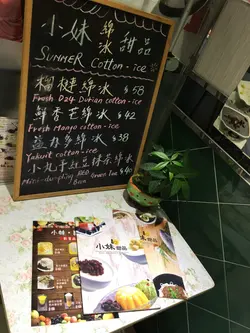 小妹 綿冰 甜品
SUMMER Cotton-ice
榴槤綿冰 $58
Fresh D24 Durian cotton-ice
鮮香芒綿冰 $42
Fresh Mango cotton-ice
益力多綿冰 $38
Yakult cotton-ice
小丸子紅豆綠茶綿冰 $40
Mini-dumpling RED Green Tea
Bean
小妹
小妹 甜品